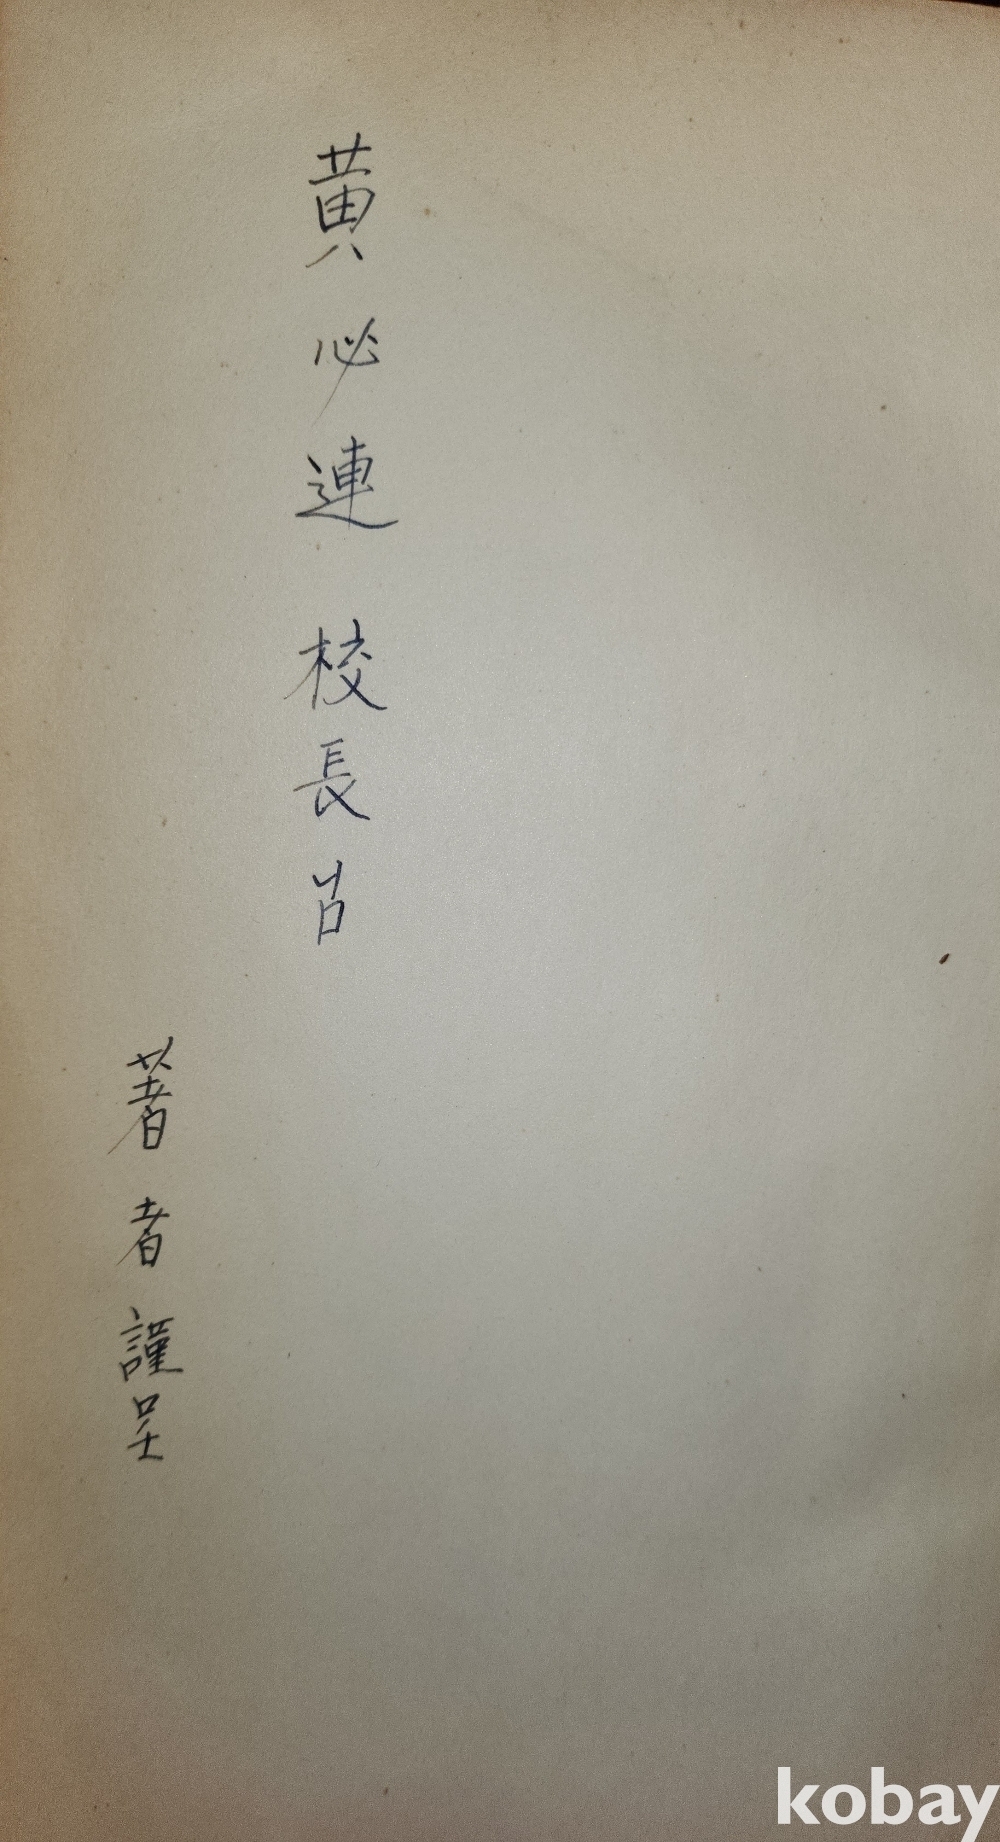 黄必連 校長 㘴
著者 謹呈
kobay